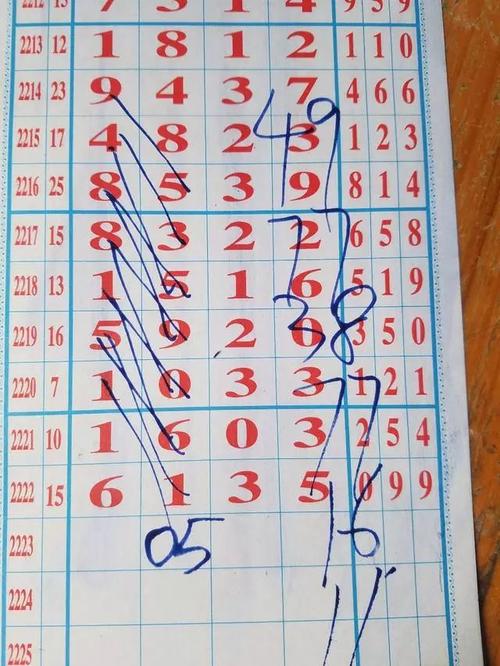 2213 12 1 8 1 2 1 1 0
2214 23 9 4 3 7 4 6 6
49
2215 17 4 8 2 3 1 2 3
2216 25 8 5 3 9 8 1 4
2217 15 8 3 2 2 6 5 8
77
2218 13 1 5 1 6 5 1 9
38
2219 16 5 9 2 0 3 5 0
2220 7 1 0 3 3 1 2 1
77
2221 10 1 6 0 3 2 5 4
2222 15 6 1 3 5 0 9 9
16
2223 05
2224
11
2225